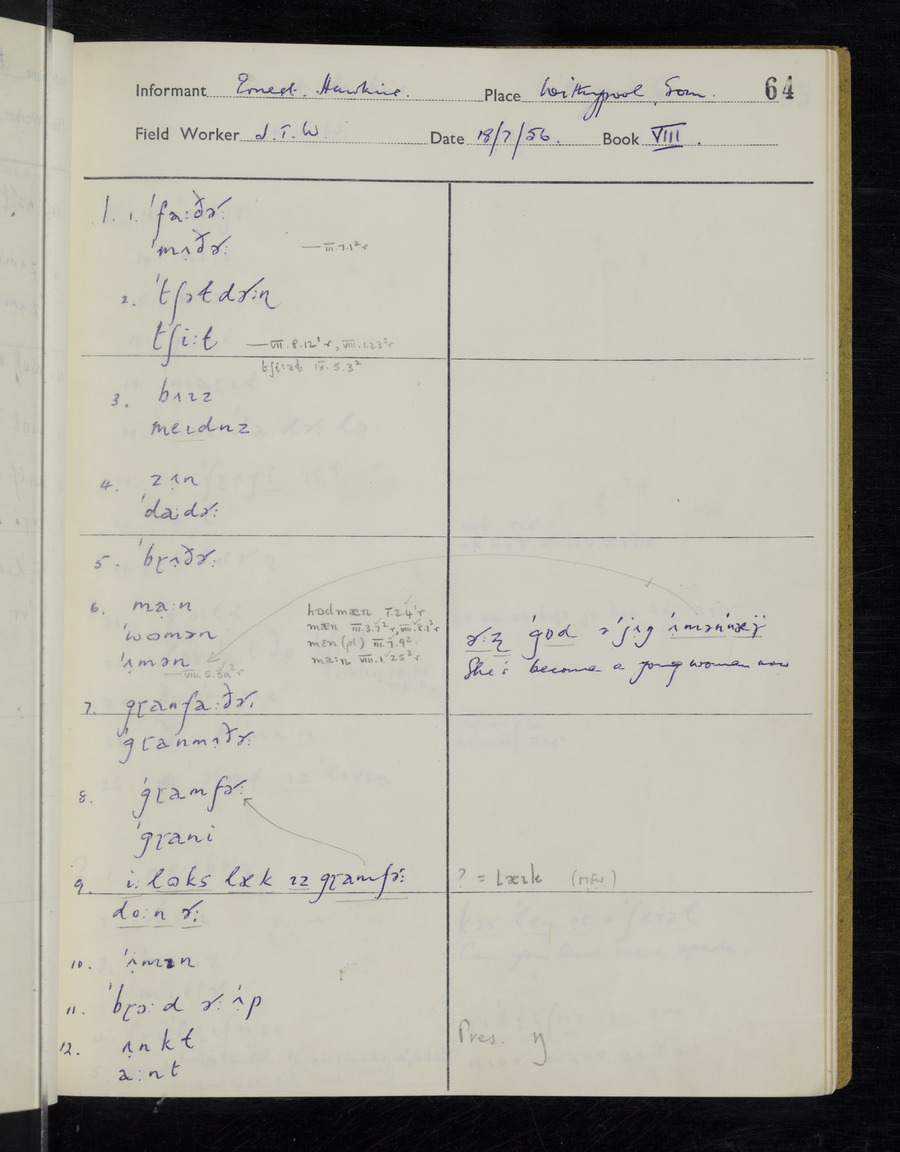 Informant Ernest. Hawkins. Place Withypool, Som. 64
Field Worker J.T.W. Date 18/7/56. Book VIII.
1. 1. ˈfaːðɚː
ˈmʌ̣ðɚː —III.7.1²r
2. ˈtʃətdɚːn
tʃiːt —VII.8.12¹r, VIII.1.23²r
tʃiːət IX.5.3²
3. bʌɪz
meɪdnz
4. zʌ̣n
ˈdaːdɚː
5. ˈbɽʌ̣ðɚː
6. maːn
ˈwʊmən
ˈʌ̣mən
—VIII.5.3a²r
hodmæn I.2.4¹r
mæn III.3.7²r, VIII.8.1²r
men (pl) III.7.9²
maːn VIII.1.25³r
ɚːz ˈgod ə ˈjʌ̣g ˈʌ̣mənˈnæʏ̈
She's become a young woman now
7. gɽanfaːðɚː
ˈgɽanmʌ̣ðɚː
8. ˈgɽamfɚː
ˈgɽani
9. iː lʊks læk ɪz gɽamfɚː
doːn ɚː
? = læɪk
10. ˈʌ̣mɪn
11. ˈbɽɔːd ɚː ˈʌ̣p
12. ʌ̣nkt
aːnt
Pres. ŋ